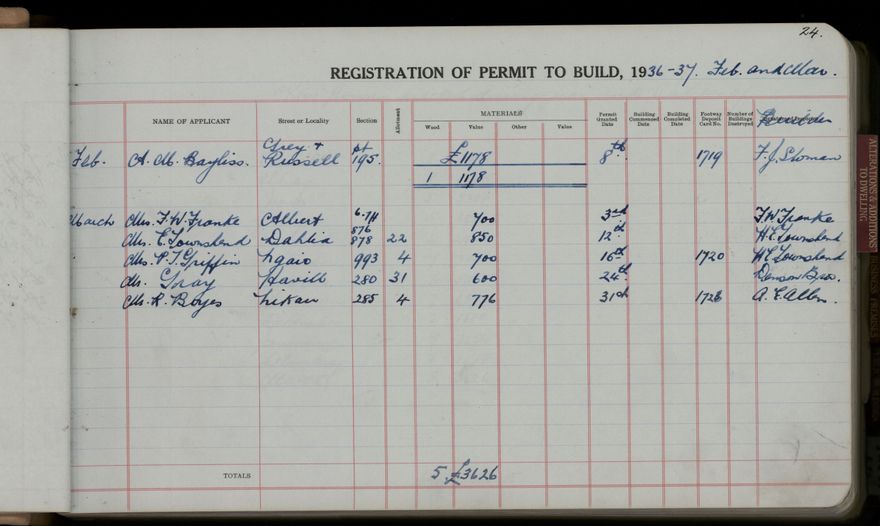 24.
REGISTRATION OF PERMIT TO BUILD, 1936-37. Feb. and Mar.
NAME OF APPLICANT Street or Locality Section Allotment MATERIALS Wood Value Other Value Permit Granted Date Building Commenced Date Building Completed Date Footway Deposit Card No. Number of Buildings Destroyed Builder
Feb. A. M. Bayliss. Grey + Russell pt 195. £1178 8th. 1719 F. J. Sloman
1 1178
March Mrs. F. W. Franke Albert 700 3rd F W Franke
Mrs. E. Townshend Dahlia 876 878 22 850 12th H E Townshend
Mrs. P. T. Griffin Ngaio 993 4 700 16th 1720 H E Townshend
Mrs. Gray Havill 280 31 600 24th Denson Bros.
Mrs. R. Boyes Nikau 285 4 776 31st A. E. Allen.
TOTALS 5 £3626
ALTERATIONS & ADDITIONS
TO DWELLING